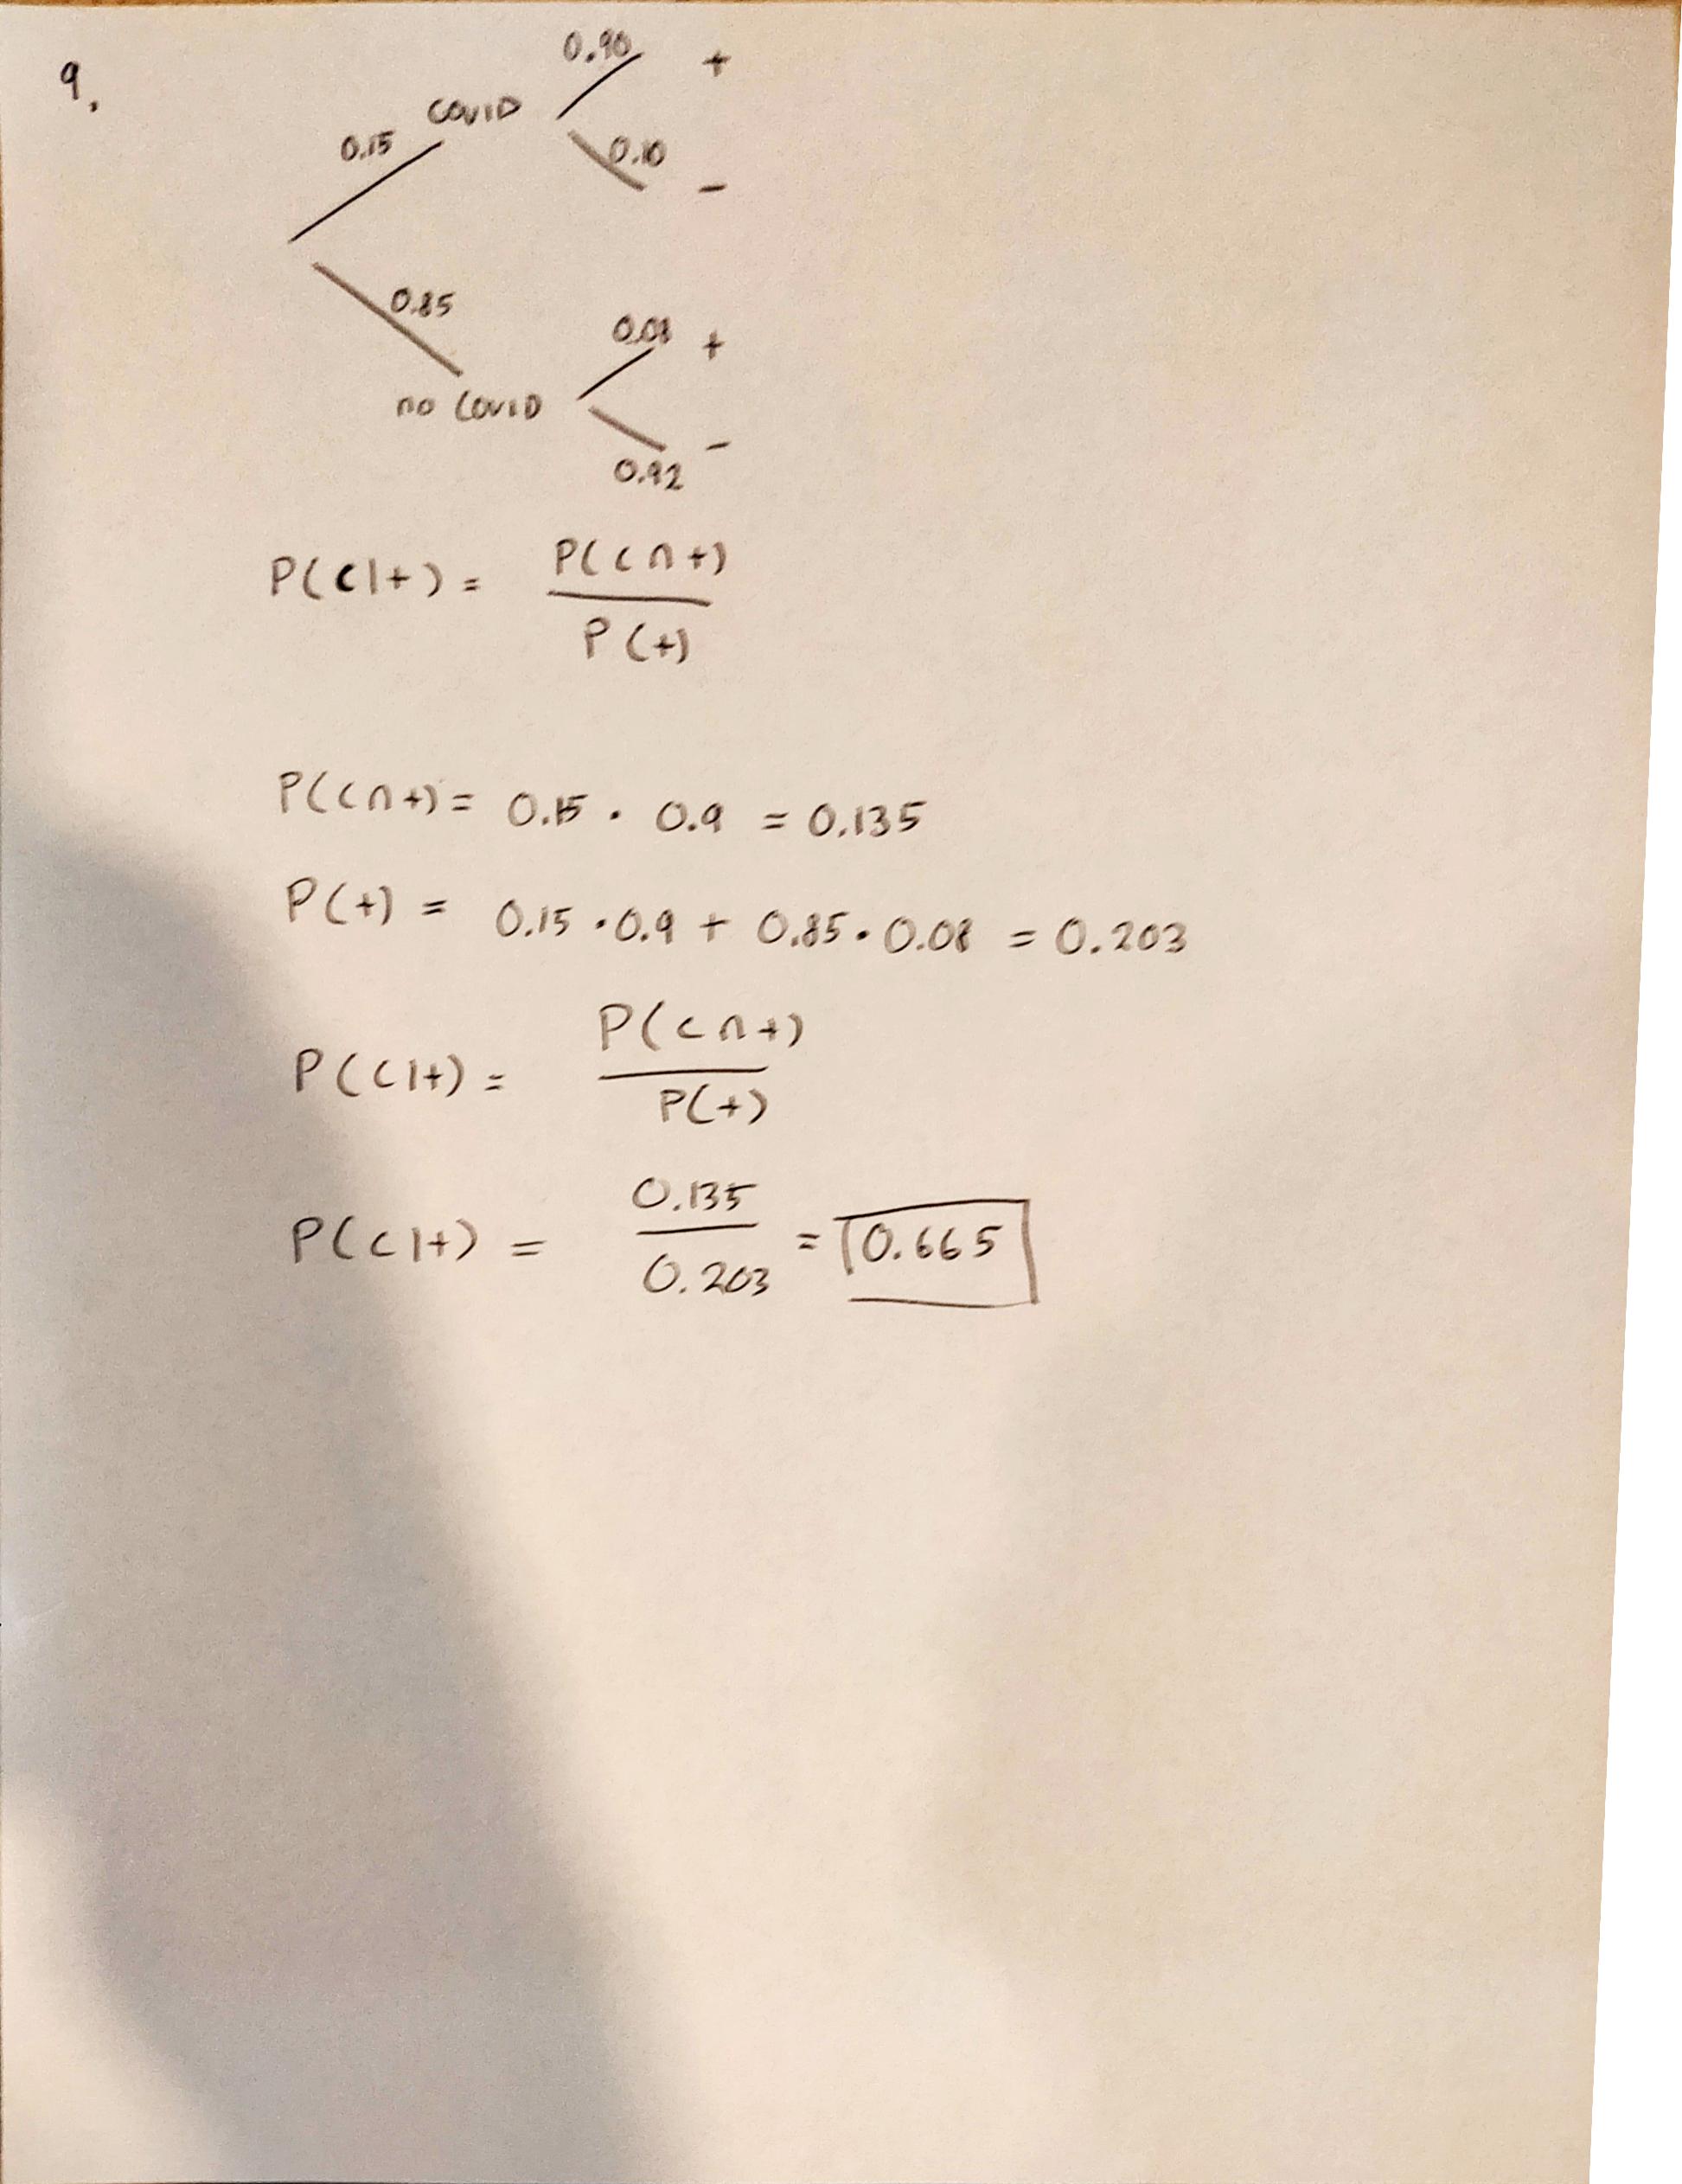 9.
0.90 +
COVID
0.15 0.10 -
0.85
0.08 +
no COVID
-
0.92
P(C|+) = P(C∩+)
P(+)
P(C∩+) = 0.15 · 0.9 = 0.135
P(+) = 0.15 · 0.9 + 0.85 · 0.08 = 0.203
P(C|+) = P(C∩+)
P(+)
P(C|+) = 0.135 = 0.665
0.203